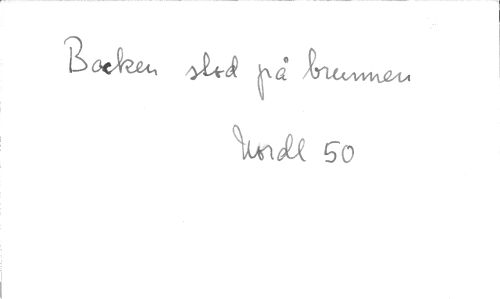 Bocken stod på brunnen
Nordl 50